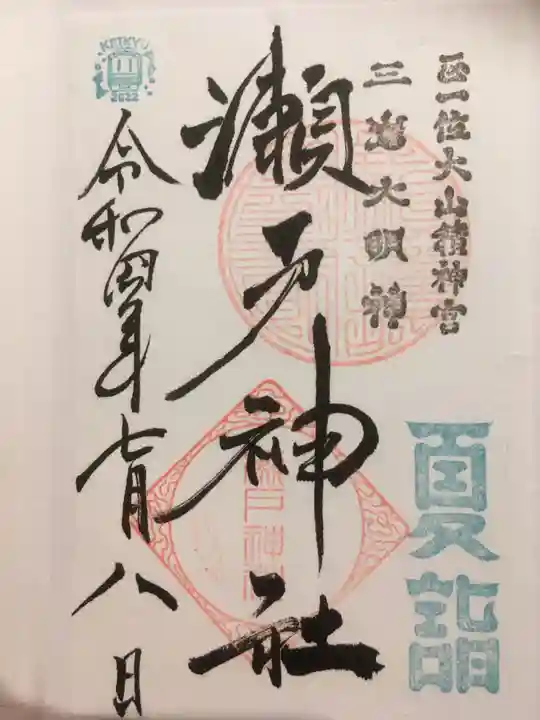 正一位大山積神宮
三嶌大明神
瀬戸神社
令和四年七月八日
夏詣
KEIKYU
2022